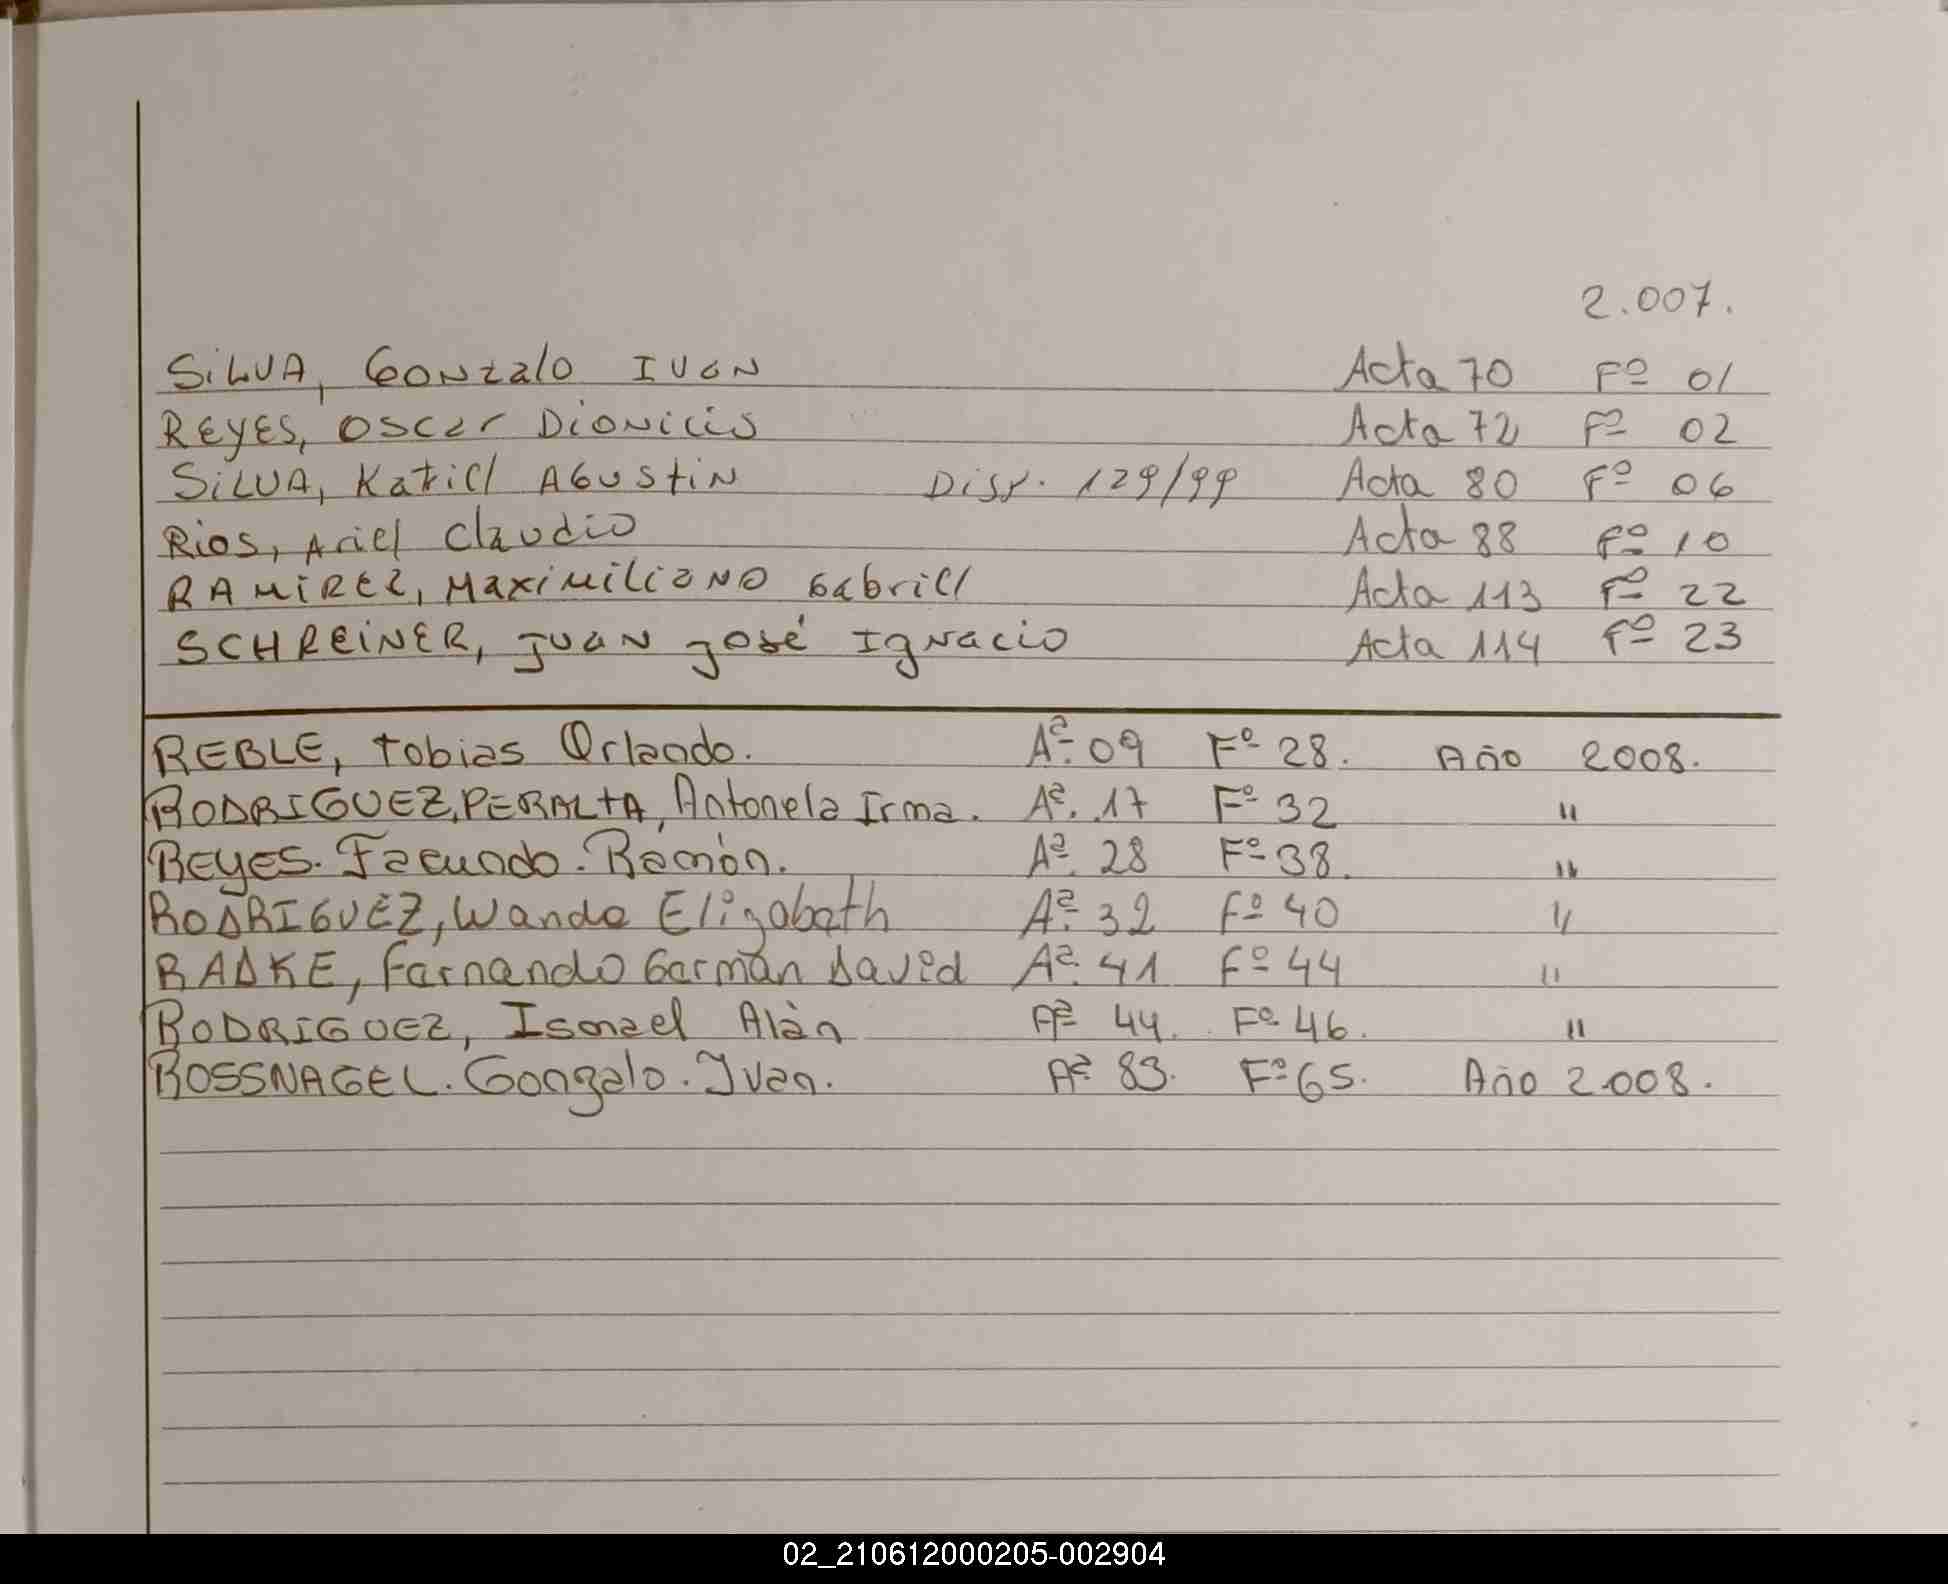 2.007.
SILVA, Gonzalo Ivan Acta 70 Fº 01
REYES, Oscar Dionicio Acta 72 Fº 02
SILVA, Katiel Agustin Disp. 129/99 Acta 80 Fº 06
Rios, Ariel Claudio Acta 88 Fº 10
RAMIREZ, Maximiliano Gabriel Acta 113 Fº 22
SCHREINER, Juan José Ignacio Acta 114 Fº 23
REBLE, Tobias Orlando. Aª. 09 Fº 28. Año 2008.
RODRIGUEZ, PERALTA, Antonela Irma. Aª. 17 Fº 32 "
REYES. Facundo. Ramón. Aª. 28 Fº 38. "
RODRIGUEZ, Wanda Elizabeth Aª. 32 Fº 40 "
RADKE, Fernando Germán David Aª. 41 Fº 44 "
RODRIGUEZ, Ismael Alàn Aª 44. Fº 46. "
ROSSNAGEL. Gonzalo. Ivan. Aª. 83. Fº 65. Año 2.008.
02_210612000205-002904